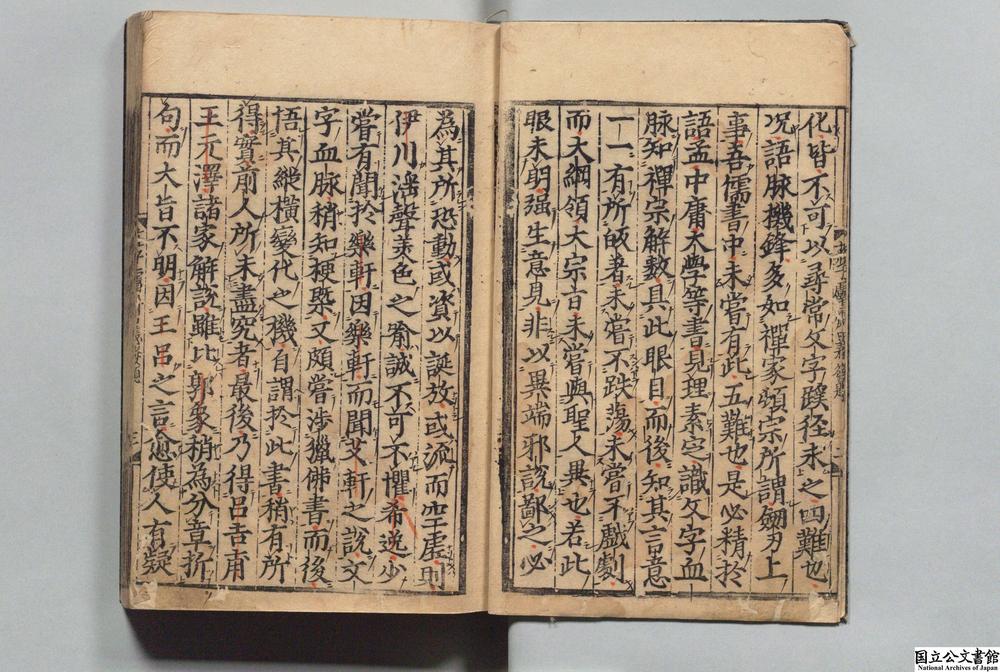 化皆不可以尋常文字蹊径求之四難也
况語脉機鋒多如禪家頓宗所謂劔刃上
事吾儒書中未嘗有此五難也是必精於
語孟中庸大學等書見理素定識文字血
脉知禪宗解數具此眼目而後知其言意
一一有所皈著未嘗不跌蕩未嘗不戲劇
而大綱領大宗旨未嘗與聖人異也若此
眼未明强生意見非以異端邪説鄙之必
為其所恐動或資以誕放或流而空虛則
伊川淫聲美色之喻誠不可不懼希逸少
嘗有聞於樂軒因樂軒而聞艾軒之説文
字血脉稍知梗槩又頗嘗涉獵佛書而後
悟其縱橫變化之機自謂於此書稍有所
得實前人所未盡究者最後乃得吕吉甫
王元澤諸家解説雖比郭象稍為分章析
句而大旨不明因王吕之言愈使人有疑
国立公文書館
National Archives of Japan